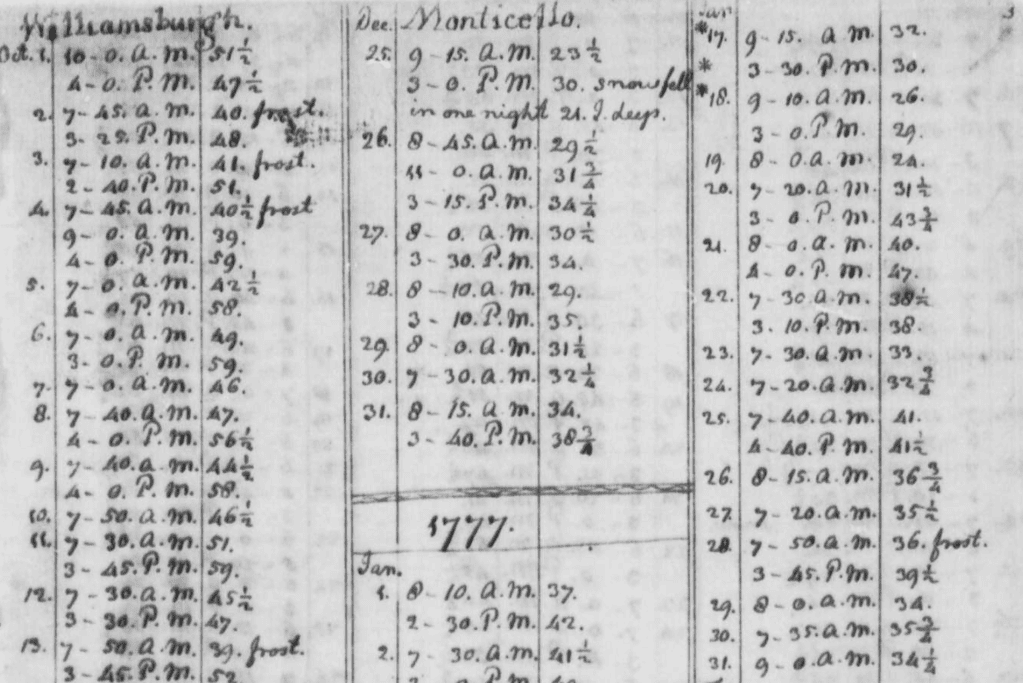 Williamsburgh.
Oct. 1. 10-0. a.m. 51 1/2
4-0. P.M. 47 1/2
2. 7-45. a.m. 40. frost.
3-25. P.M. 48.
3. 7-10. a.m. 41. frost.
2-40. P.M. 51.
4. 7-45. a.m. 40 1/2 frost
9-0. a.m. 39.
4-0. P.m. 59.
5. 7-0. a.m. 42 1/2
4-0. P.m. 58.
6. 7-0. a.m. 49.
3-0. P.M. 59.
7. 7-0. a.m. 46.
8. 7-40. a.m. 47.
4-0. P.m. 56 1/2
9. 7-40. a.m. 44 1/2
4-0. P.m. 58.
10. 7-50. a.m. 46 1/2
11. 7-30. a.m. 51.
3-45. P.m. 59.
12. 7-30. a.m. 45 1/2
3-30. P.m. 47.
13. 7-50. a.m. 39. frost.
3-45. P.m. 52
Dec. Monticello.
25. 9-15. a.m. 23 1/2
3-0. P.M. 30. snow fell
in one night 21. I. deep.
26. 8-45. a.m. 29 1/2
11-0. a.m. 31 3/4
3-15. P.m. 34 1/4
27. 8-0. a.m. 30 1/2
3-30. P.m. 34.
28. 8-10. a.m. 29.
3-10. P.m. 35.
29. 8-0. a.m. 31 1/2
30. 7-30. a.m. 32 1/4
31. 8-15. a.m. 34.
3-40. P.m.
1777.
Jan.
1. 8-10. a.m. 37.
2-30. P.m. 42.
2. 7-30. a.m. 41 1/2
Jan 3
*17. 9-15. a.m. 32.
* 3-30. P.m. 30.
*18. 9-10. a.m. 26.
3-0. P.m. 29.
19. 8-0. a.m. 24.
20. 7-20. a.m. 31 1/2
3-0. P.m. 43 3/4
21. 8-0. a.m. 40.
4-0. P.m. 47.
22. 7-30. a.m. 38 1/2
3-10. P.m. 38.
23. 7-30. a.m. 33.
24. 7-20. a.m. 32 3/4
25. 7-40. a.m. 41.
4-40. P.m. 41 1/2
26. 8-15. a.m. 36 3/4
27. 7-20. a.m. 35 1/2
28. 7-50. a.m. 36. frost.
3-45. P.m. 39 1/2
29. 8-0. a.m. 34.
30. 7-35. a.m. 35 3/4
31. 9-0. a.m. 34 1/4